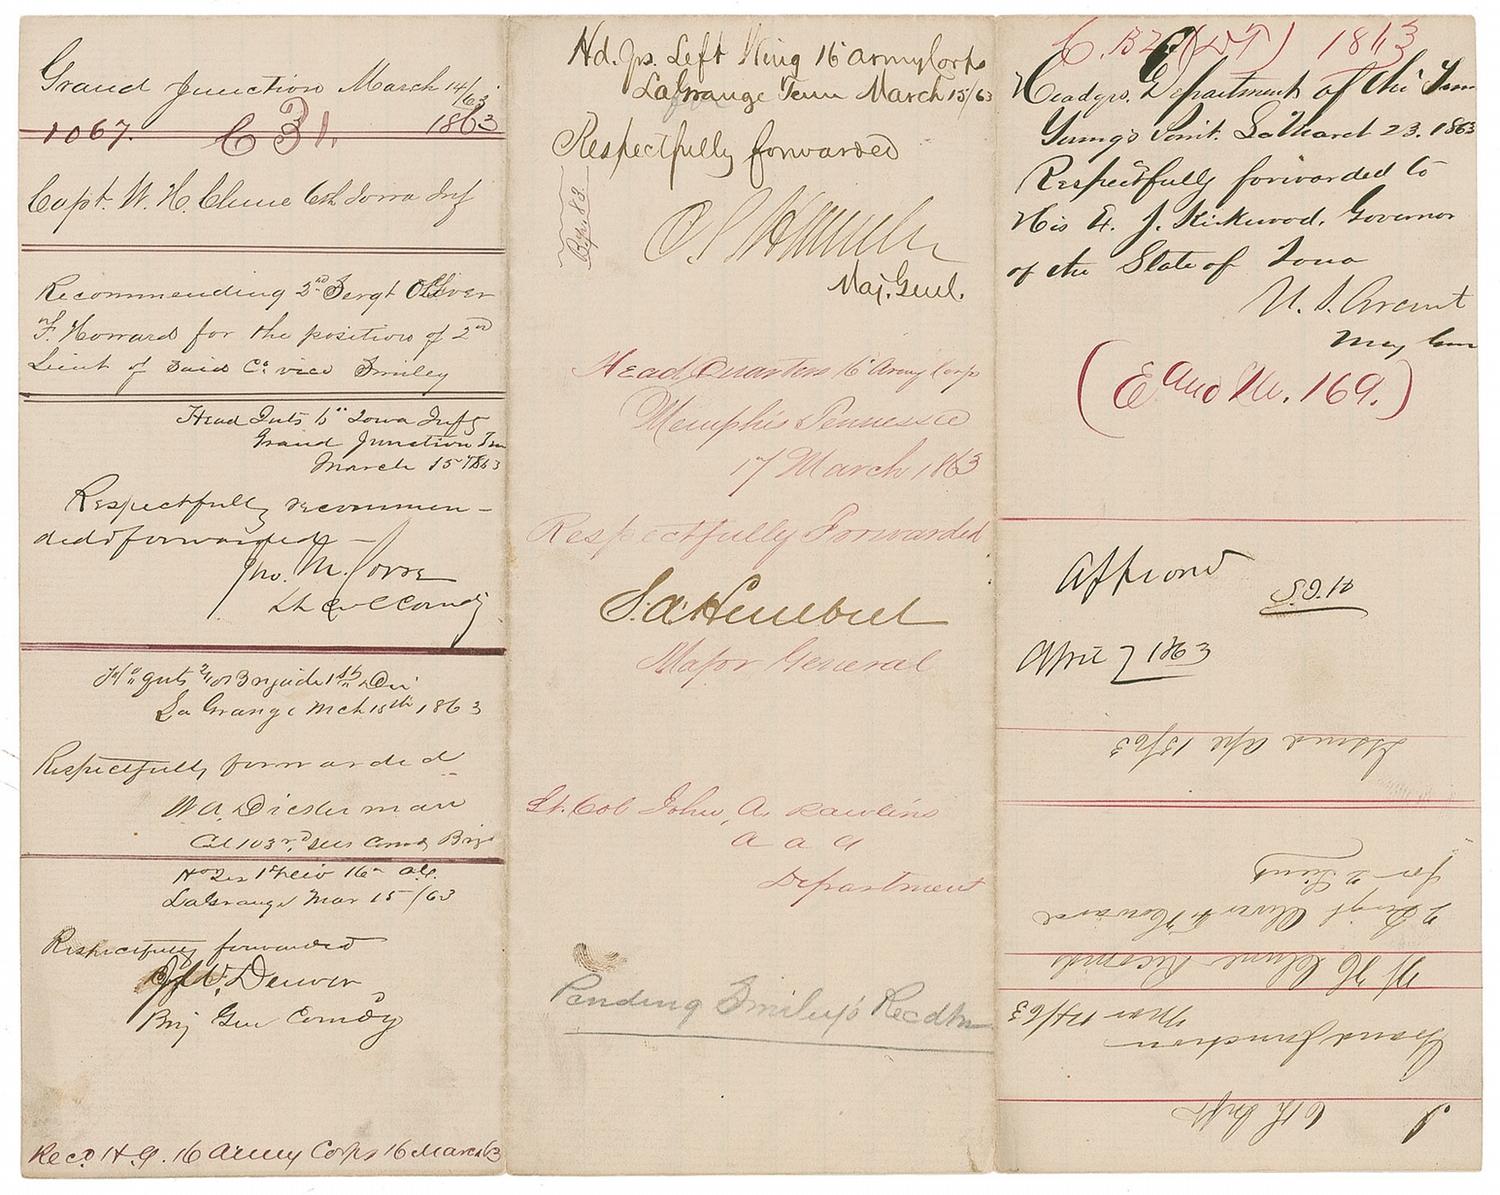 Grand Junction March 14/63
1067. C 31. 1863
Capt. W. H. Clune 6th Iowa Inf
Recommending 2nd Sergt Oliver
F. Howard for the position of 2nd
Lieut of said Co vice Smiley
Head Qrts 6" Iowa Infy
Grand Junction Ten
March 15 1863
Respectfully recommen-
ded & forwarded -
Jno. M. Corse
Lt Col Comdg
Hd qrts 2nd Brigade 1st Div
La Grange Mch 15th 1863
Respectfully forwarded
W. A. Dickerman
Col 103rd Ills Comdg Brig
Hd Qrs 1st Div 16th A.C.
LaGrange Mar 15/63
Respectfully forwarded
J. W. Denver
Brig Gen Comdg
Recd H. Q. 16 Army Corps 16 March 63
Hd. Qrs. Left Wing 16 Army Corps
LaGrange Tenn March 15/63
Respectfully forwarded
C. S. Hamilton
Maj. Genl.
Head Quarters 16 Army Corps
Memphis Tennessee
17 March 1863
Respectfully Forwarded
S. A. Hurlbut
Major General
Lt. Col John A. Rawlins
A A G
Department
Pending Smiley's
1863
Headqrs. Department of the Tenn
Young's Point. La March 23. 1863
Respectfully forwarded to
His E. J. Kirkwood, Governor
of the State of Iowa
U. S. Grant
Maj Genl
(E and M. 169.)
Approved
S.J.K
April 7 1863
Issued Apr 15/63
6th Infty
Grand Junction
Mar 14/63
W H Clune Recomds
2 Sergt Oliver F Howard
for 2 Lieut